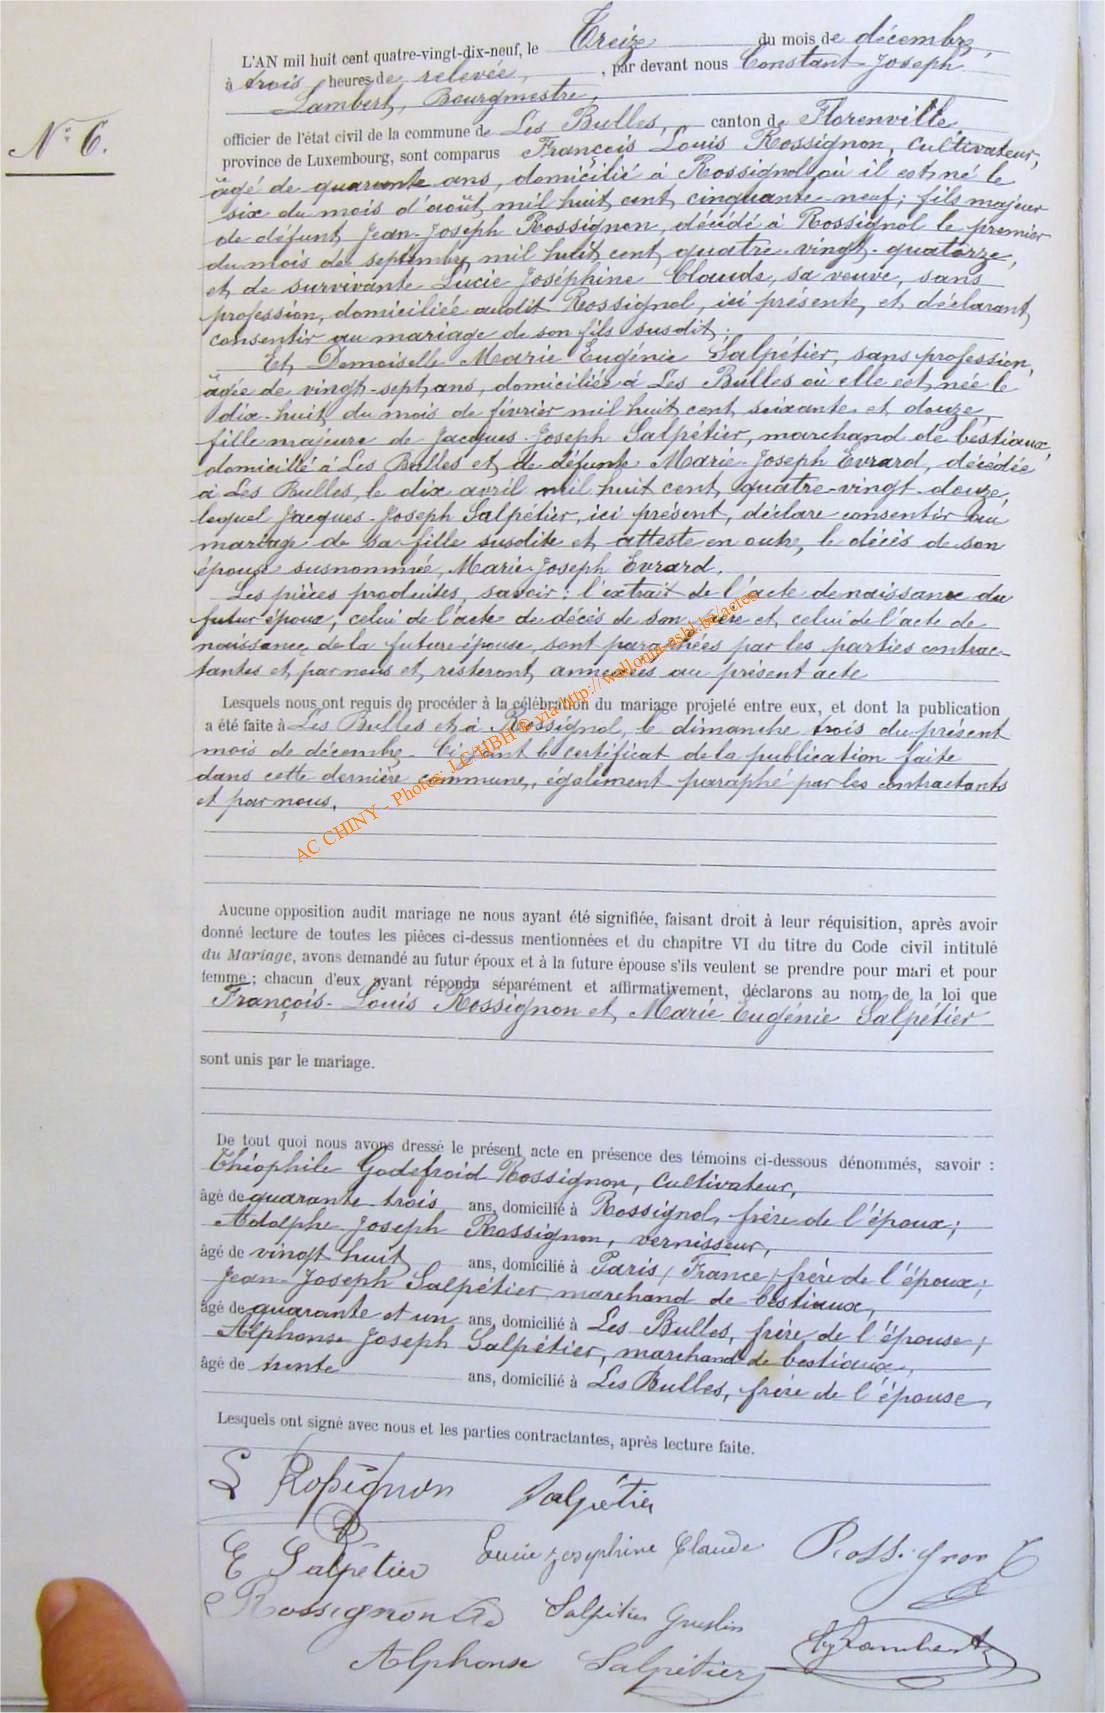 N° 6.
L'AN mil huit cent quatre-vingt-dix-neuf, le Treize du mois de décembre,
à trois heures de relevée, , par devant nous Constant Joseph
Lambert, Bourgmestre,
officier de l'état civil de la commune de Les Bulles, canton de Florenville
province de Luxembourg, sont comparus François Louis Rossignon, cultivateur,
âgé de quarante ans, domicilié à Rossignol où il est né le
six du mois d'août mil huit cent cinquante-neuf; fils majeur
de défunt Jean-Joseph Rossignon, décédé à Rossignol le premier
du mois de septembre mil huit cent quatre-vingt-quatorze,
et de survivante Lucie Joséphine Claude, sa veuve, sans
profession, domiciliée audit Rossignol, ici présente, et déclarant
consentir au mariage de son fils susdit;
Et Demoiselle Marie Eugénie Salpétier, sans profession,
âgée de vingt-sept ans, domiciliée à Les Bulles où elle est née le
dix-huit du mois de février mil huit cent soixante et douze,
fille majeure de Jacques-Joseph Salpétier, marchand de bestiaux,
domicilié à Les Bulles et de défunte Marie-Joseph Evrard, décédée
à Les Bulles, le dix avril mil huit cent quatre-vingt-douze,
lequel Jacques-Joseph Salpétier, ici présent, déclare consentir au
mariage de sa fille susdite et atteste en outre, le décès de son
épouse susnommée, Marie-Joseph Evrard.
Les pièces produites, savoir: l'extrait de l'acte de naissance du
futur époux; celui de l'acte de décès de son père et celui de l'acte de
naissance de la future épouse, sont paraphées par les parties contrac-
tantes et par nous et resteront annexées au présent acte
Lesquels nous ont requis de procéder à la célébration du mariage projeté entre eux, et dont la publication
a été faite à Les Bulles et à Rossignol, le dimanche trois du présent
mois de décembre. Ci-joint le certificat de la publication faite
dans cette dernière commune, également paraphé par les contractants
et par nous.
AC CHINY - Photos: LC/HBH © via http://wallonia-asbl.be/actes
Aucune opposition audit mariage ne nous ayant été signifiée, faisant droit à leur réquisition, après avoir
donné lecture de toutes les pièces ci-dessus mentionnées et du chapitre VI du titre du Code civil intitulé
du Mariage, avons demandé au futur époux et à la future épouse s'ils veulent se prendre pour mari et pour
femme; chacun d'eux ayant répondu séparément et affirmativement, déclarons au nom de la loi que
François-Louis Rossignon et Marie Eugénie Salpétier
sont unis par le mariage.
De tout quoi nous avons dressé le présent acte en présence des témoins ci-dessous dénommés, savoir :
Théophile Godefroid Rossignon, cultivateur,
âgé de quarante-trois ans, domicilié à Rossignol, frère de l'époux;
Adolphe Joseph Rossignon, vernisseur,
âgé de vingt huit ans, domicilié à Paris (France) frère de l'époux;
Jean-Joseph Salpétier, marchand de bestiaux,
âgé de quarante et un ans, domicilié à Les Bulles, frère de l'épouse;
Alphonse Joseph Salpétier, marchand de bestiaux,
âgé de trente ans, domicilié à Les Bulles, frère de l'épouse,
Lesquels ont signé avec nous et les parties contractantes, après lecture faite.
L Rossignon Salpétier
E Salpétier Lucie Josephine Claude Rossignon T
Rossignon Ad Salpétier
Alphonse Salpétier Lambert